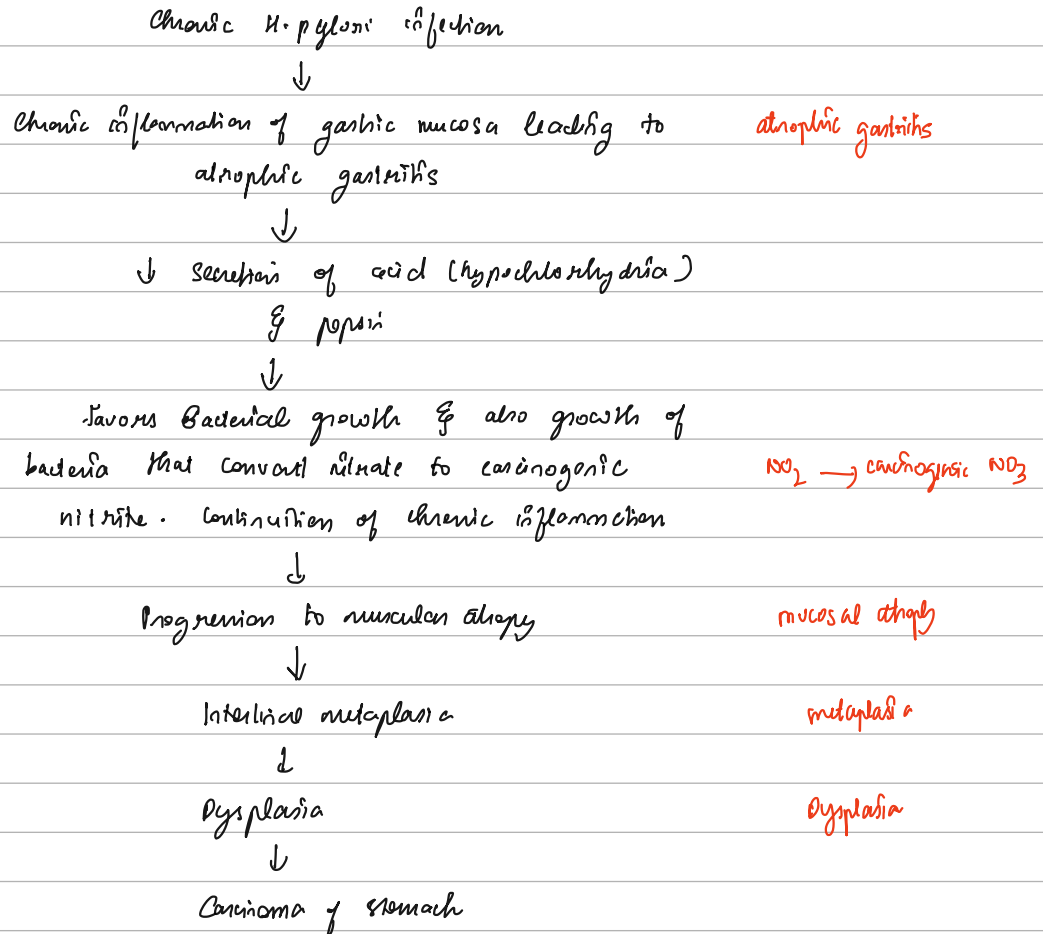 Chronic H. pylori infection
↓
Chronic inflammation of gastric mucosa leading to atrophic gastritis
atrophic gastritis
↓
↓ Secretion of acid (hypochlorhydria)
& pepsin
↓
favors Bacterial growth & also growth of
bacteria that convert nitrate to carcinogenic NO2 → carcinogenic NO3
nitrite. Continuition of chronic inflammation
↓
Progression to muscular atropy mucosal atrophy
↓
Intestinal metaplasia metaplasia
↓
Dysplasia Dysplasia
↓
Carcinoma of stomach